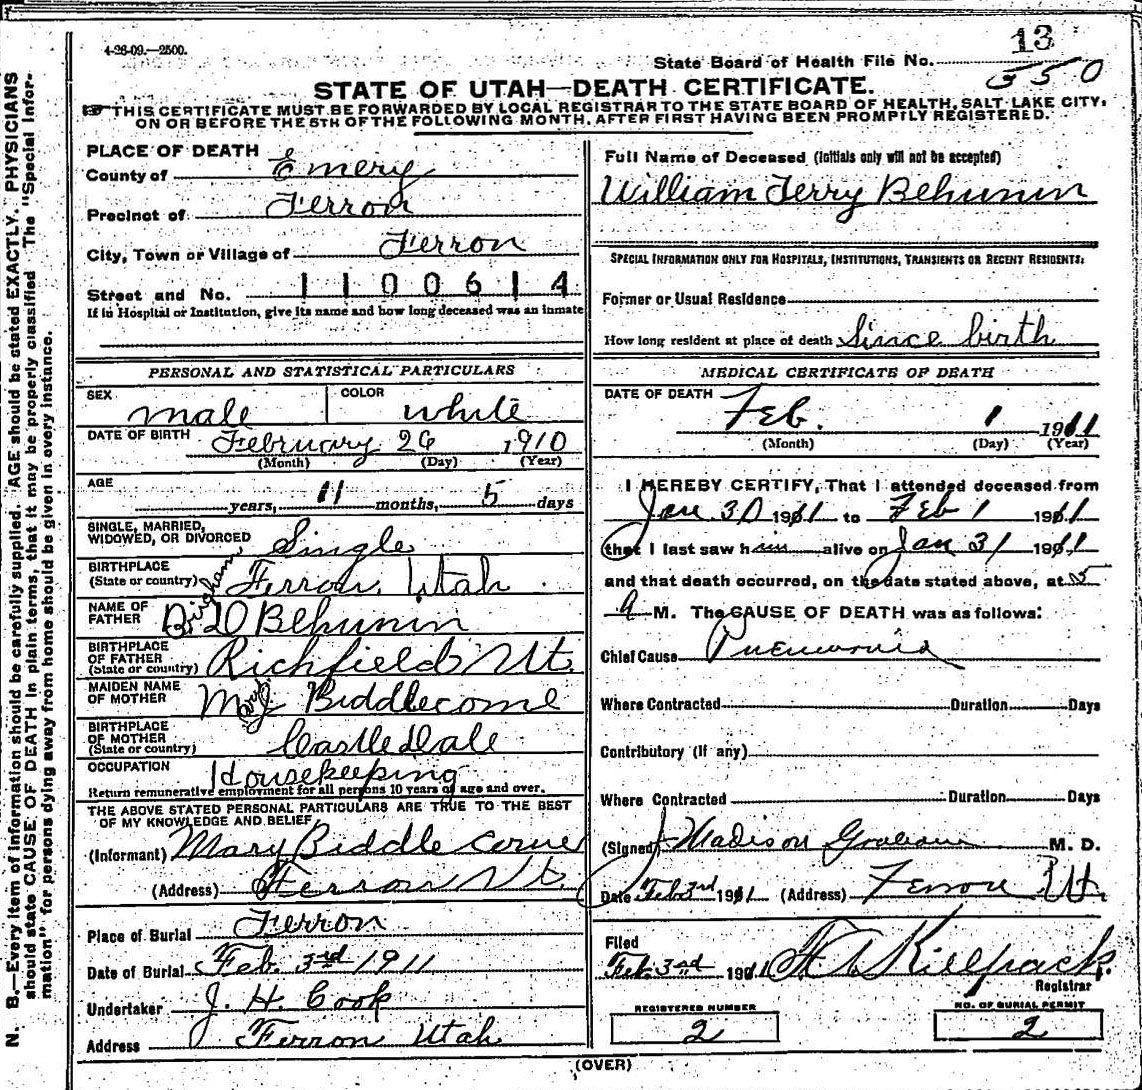 4-26-09.—2500.
13
State Board of Health File No. 350
STATE OF UTAH—DEATH CERTIFICATE.
THIS CERTIFICATE MUST BE FORWARDED BY LOCAL REGISTRAR TO THE STATE BOARD OF HEALTH, SALT LAKE CITY,
ON OR BEFORE THE 5TH OF THE FOLLOWING MONTH, AFTER FIRST HAVING BEEN PROMPTLY REGISTERED.
N. B.—Every item of information should be carefully supplied. AGE should be stated EXACTLY. PHYSICIANS
should state CAUSE OF DEATH in plain terms, that it may be properly classified. The "Special Infor-
mation" for persons dying away from home should be given in every instance.
PLACE OF DEATH
County of Emery
Precinct of Ferron
City, Town or Village of Ferron
Street and No. 1100614
If in Hospital or Institution, give its name and how long deceased was an inmate
PERSONAL AND STATISTICAL PARTICULARS
SEX male COLOR white
DATE OF BIRTH February 26 1910
(Month) (Day) (Year)
AGE
years, 11 months, 5 days
SINGLE, MARRIED,
WIDOWED, OR DIVORCED Single
BIRTHPLACE
(State or country) Ferron, Utah
NAME OF
FATHER Brigham D Behunin
BIRTHPLACE
OF FATHER
(State or country) Richfield Ut.
MAIDEN NAME
OF MOTHER Mary J Biddlecome
BIRTHPLACE
OF MOTHER
(State or country) Castle Dale
OCCUPATION Housekeeping
Return remunerative employment for all persons 10 years of age and over.
THE ABOVE STATED PERSONAL PARTICULARS ARE TRUE TO THE BEST
OF MY KNOWLEDGE AND BELIEF
(Informant) Mary Biddlecome
(Address) Ferron Ut.
Place of Burial Ferron
Date of Burial Feb. 3rd 1911
Undertaker J. H. Cook
Address Ferron Utah
Full Name of Deceased (Initials only will not be accepted)
William Terry Behunin
SPECIAL INFORMATION ONLY FOR HOSPITALS, INSTITUTIONS, TRANSIENTS OR RECENT RESIDENTS:
Former or Usual Residence
How long resident at place of death Since birth
MEDICAL CERTIFICATE OF DEATH
DATE OF DEATH Feb. 1 1911
(Month) (Day) (Year)
I HEREBY CERTIFY, That I attended deceased from
Jan 30 1911 to Feb 1 1911
that I last saw him alive on Jan 31 1911
and that death occurred, on the date stated above, at 5
a M. The CAUSE OF DEATH was as follows:
Chief Cause Pneumonia
Where Contracted Duration Days
Contributory (if any)
Where Contracted Duration Days
(Signed) J Madison Graham M. D.
Date Feb 3rd 1911 (Address) Ferron Ut.
Filed
Feb. 3rd 1911 Killpack
Registrar
REGISTERED NUMBER
2
NO. OF BURIAL PERMIT
2
(OVER)